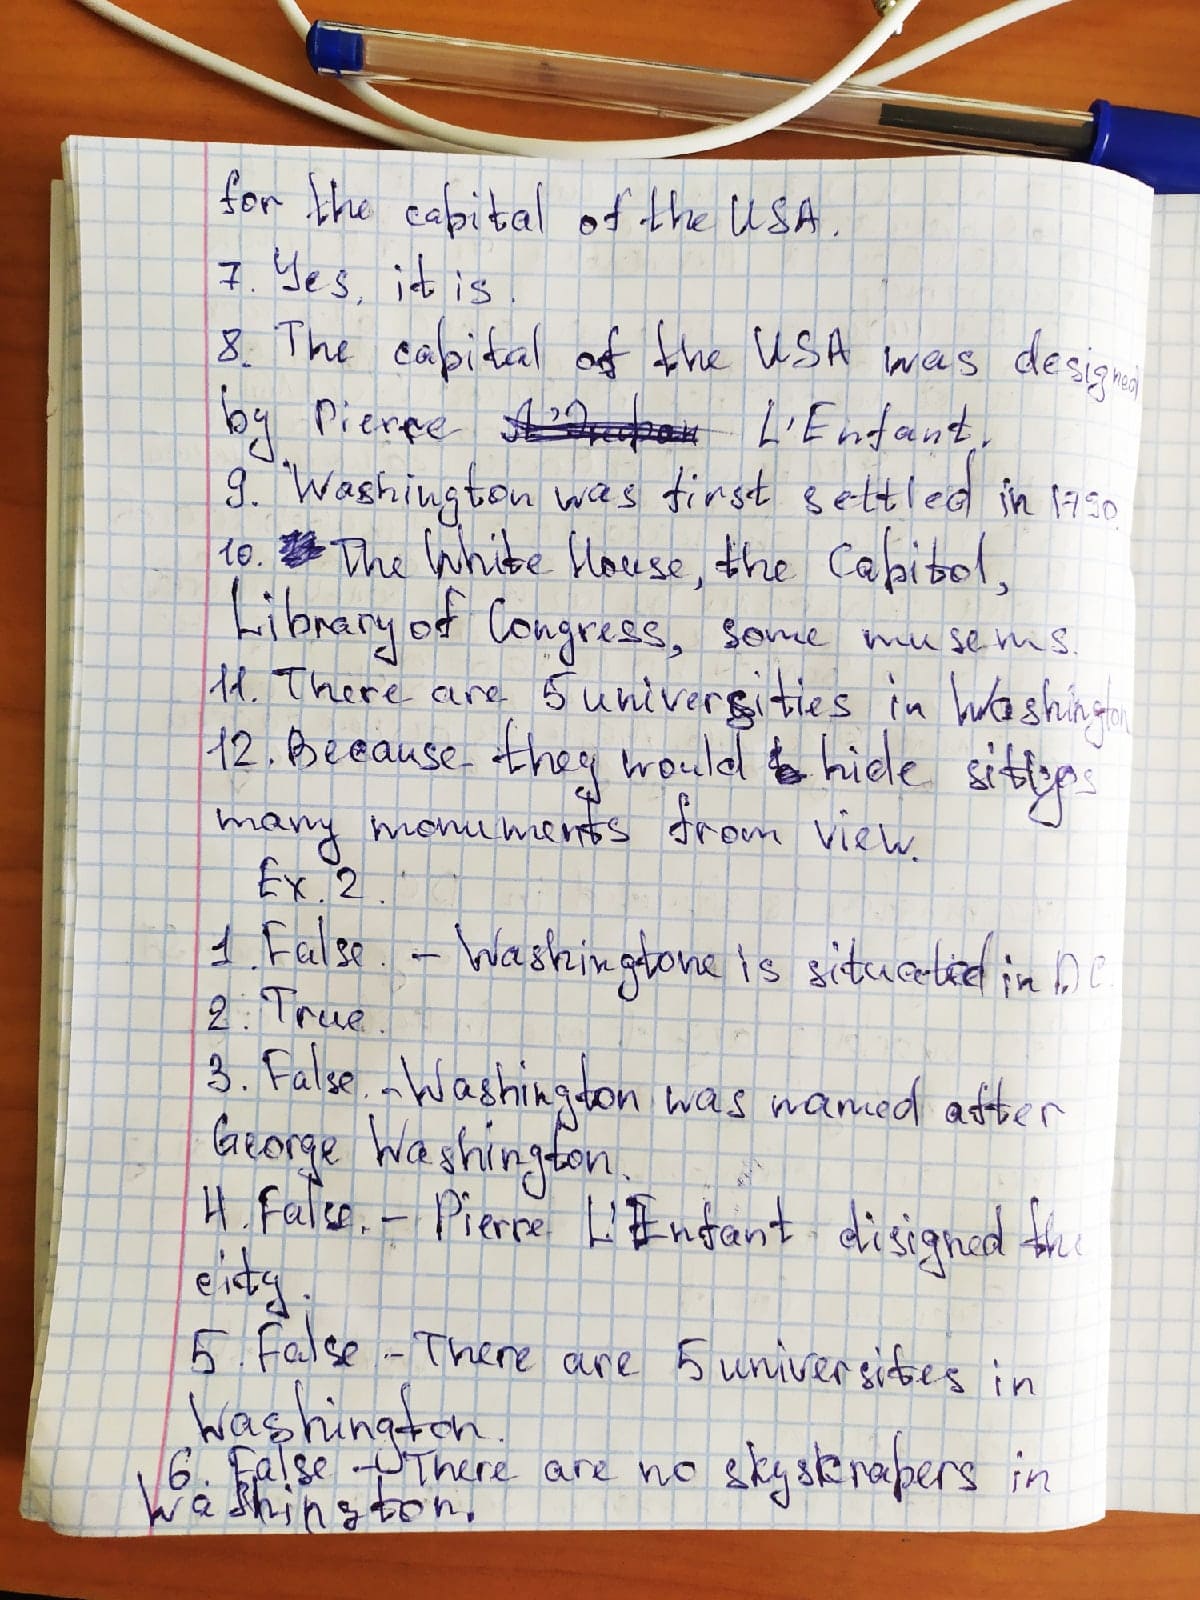 for the capital of the USA.
7. Yes, it is.
8. The capital of the USA was designed
by Pierre L'Enfant.
9. Washington was first settled in 1790.
10. The White House, the Capitol,
Library of Congress, some musems.
11. There are 5 universities in Washington
12. Because they would hide
many monuments from view.
Ex. 2.
1. False. - Washingtone is situated in DC.
2. True.
3. False. - Washington was named after
George Washington.
4. False. - Pierre L'Enfant disigned the
city.
5. False - There are 5 universites in
Washington.
6. False - There are no skyskrapers in
Washington.